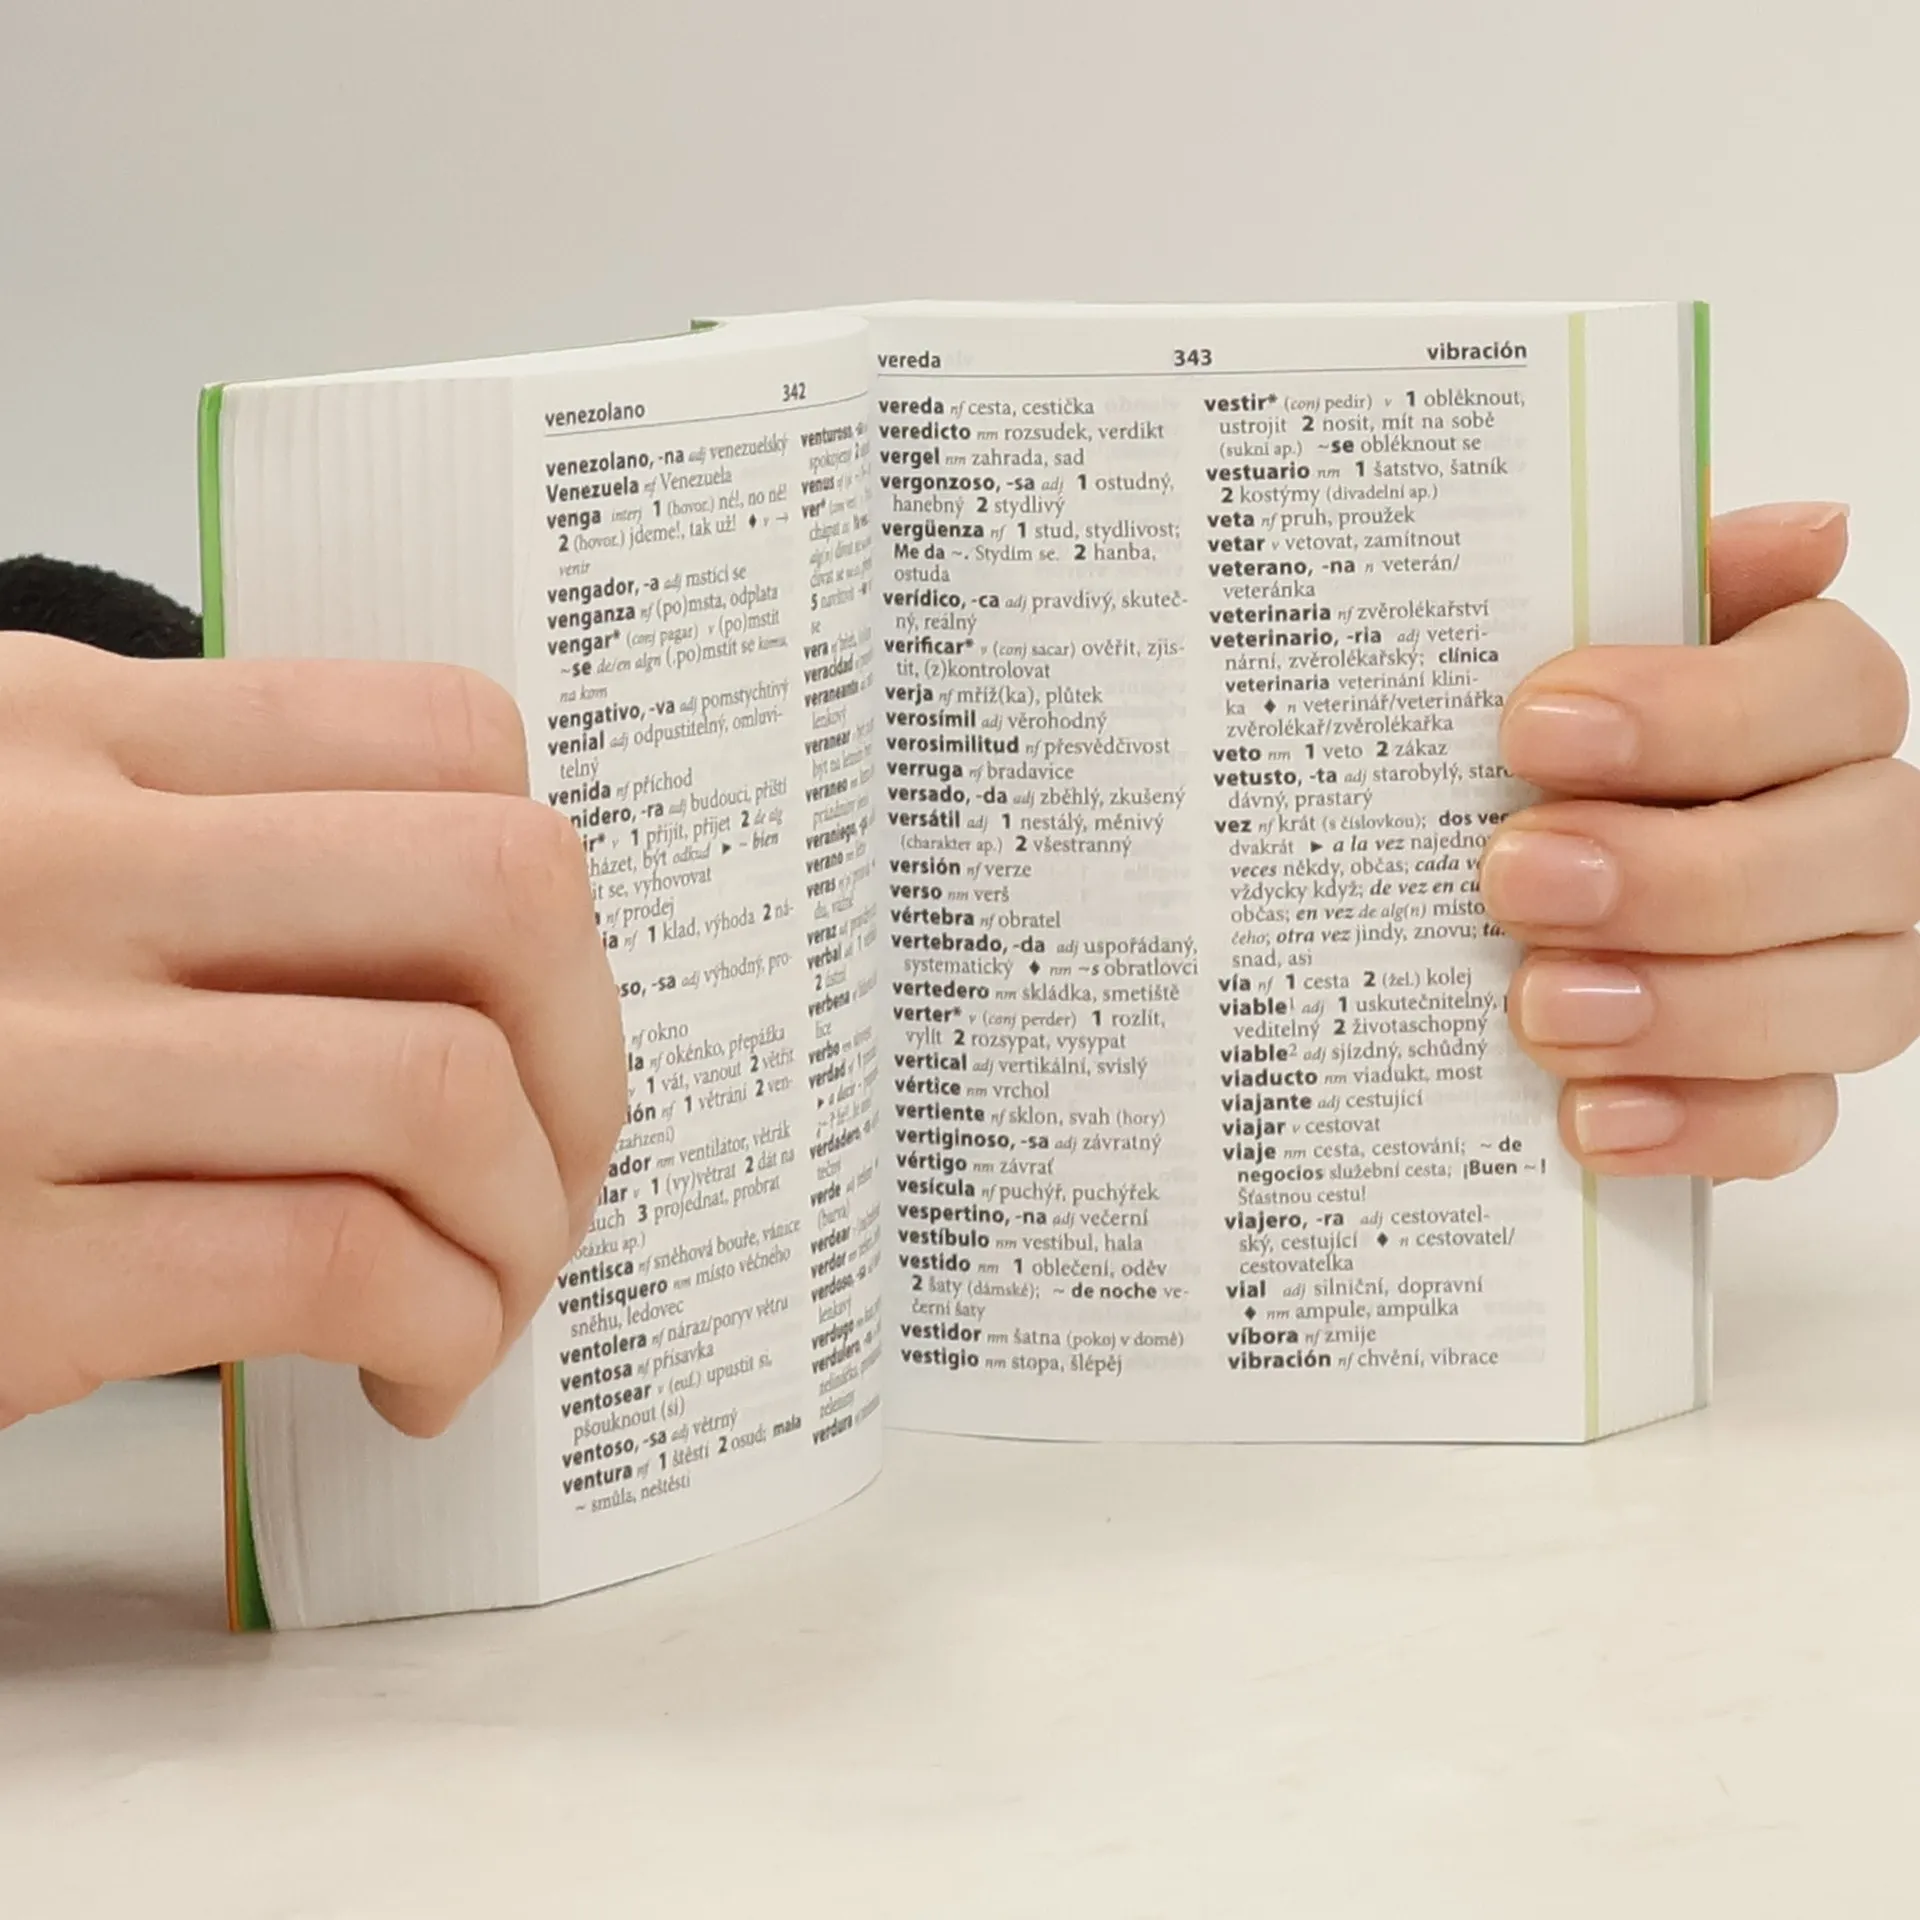 venezolano 342
venezolano, -na adj venezuelský
Venezuela nf Venezuela
venga interj 1 (hovor.) né!, no né!
2 (hovor.) jdeme!, tak už! ♦ v →
venir
vengador, -a adj mstící se
venganza nf (po)msta, odplata
vengar* (conj pagar) v (po)mstít
~se de/en algn (po)mstít se komu,
na kom
vengativo, -va adj pomstychtivý
venial adj odpustitelný, omluvi-
telný
venida nf příchod
nidero, -ra adj budoucí, příští
ir* v 1 přijít, přijet 2 de alg
házet, být odkud ► ~ bien
it se, vyhovovat
nf prodej
ia nf 1 klad, výhoda 2 ná-
oso, -sa adj výhodný, pro-
nf okno
la nf okénko, přepážka
v 1 vát, vanout 2 větřit
ión nf 1 větrání 2 ven-
zařízení)
ador nm ventilátor, větrák
ilar v 1 (vy)větrat 2 dát na
uch 3 projednat, probrat
otázku ap.)
ventisca nf sněhová bouře, vánice
ventisquero nm místo věčného
sněhu, ledovec
ventolera nf náraz/poryv větru
ventosa nf přísavka
ventosear v (euf.) upustit si,
pšouknout (si)
ventoso, -sa adj větrný
ventura nf 1 štěstí 2 osud; mala
~ smůla, neštěstí
venturoso,
spokojený 2
venus
ver*
vera
veracidad
veraneante
veranear
veraneo
veraniego,
verano
veras
veraz
verbal
verbena
verbo
verdad
verdadero,
verde
(barva)
verdear
verdor
verdoso, -sa
verdugo
verdulero,
verdura
vereda 343 vibración
vereda nf cesta, cestička
veredicto nm rozsudek, verdikt
vergel nm zahrada, sad
vergonzoso, -sa adj 1 ostudný,
hanebný 2 stydlivý
vergüenza nf 1 stud, stydlivost;
Me da ~. Stydím se. 2 hanba,
ostuda
verídico, -ca adj pravdivý, skuteč-
ný, reálný
verificar* v (conj sacar) ověřit, zjis-
tit, (z)kontrolovat
verja nf mříž(ka), plůtek
verosímil adj věrohodný
verosimilitud nf přesvědčivost
verruga nf bradavice
versado, -da adj zběhlý, zkušený
versátil adj 1 nestálý, měnivý
(charakter ap.) 2 všestranný
versión nf verze
verso nm verš
vértebra nf obratel
vertebrado, -da adj uspořádaný,
systematický ♦ nm ~s obratlovci
vertedero nm skládka, smetiště
verter* v (conj perder) 1 rozlít,
vylít 2 rozsypat, vysypat
vertical adj vertikální, svislý
vértice nm vrchol
vertiente nf sklon, svah (hory)
vertiginoso, -sa adj závratný
vértigo nm závrať
vesícula nf puchýř, puchýřek
vespertino, -na adj večerní
vestíbulo nm vestibul, hala
vestido nm 1 oblečení, oděv
2 šaty (dámské); ~ de noche ve-
černí šaty
vestidor nm šatna (pokoj v domě)
vestigio nm stopa, šlépěj
vestir* (conj pedir) v 1 obléknout,
ustrojit 2 nosit, mít na sobě
(sukni ap.) ~se obléknout se
vestuario nm 1 šatstvo, šatník
2 kostýmy (divadelní ap.)
veta nf pruh, proužek
vetar v vetovat, zamítnout
veterano, -na n veterán/
veteránka
veterinaria nf zvěrolékařství
veterinario, -ria adj veteri-
nární, zvěrolékařský; clínica
veterinaria veterinání klini-
ka ♦ n veterinář/veterinářka
zvěrolékař/zvěrolékařka
veto nm 1 veto 2 zákaz
vetusto, -ta adj starobylý, staro
dávný, prastarý
vez nf krát (s číslovkou); dos vec
dvakrát ► a la vez najedno
veces někdy, občas; cada v
vždycky když; de vez en cu
občas; en vez de alg(n) místo
čeho; otra vez jindy, znovu; ta
snad, asi
vía nf 1 cesta 2 (žel.) kolej
viable¹ adj 1 uskutečnitelný,
veditelný 2 životaschopný
viable² adj sjízdný, schůdný
viaducto nm viadukt, most
viajante adj cestující
viajar v cestovat
viaje nm cesta, cestování; ~ de
negocios služební cesta; ¡Buen ~!
Šťastnou cestu!
viajero, -ra adj cestovatel-
ský, cestující ♦ n cestovatel/
cestovatelka
vial adj silniční, dopravní
♦ nm ampule, ampulka
víbora nf zmije
vibración nf chvění, vibrace